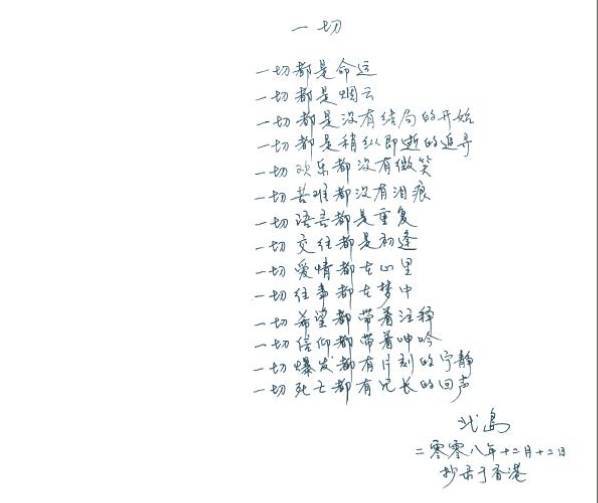 一切
一切都是命运
一切都是烟云
一切都是没有结局的开始
一切都是稍纵即逝的追寻
一切欢乐都没有微笑
一切苦难都没有泪痕
一切语言都是重复
一切交往都是初逢
一切爱情都在心里
一切往事都在梦中
一切希望都带着注释
一切信仰都带着呻吟
一切爆发都有片刻的宁静
一切死亡都有冗长的回声
北岛
二零零八年十二月十二日
抄录于香港